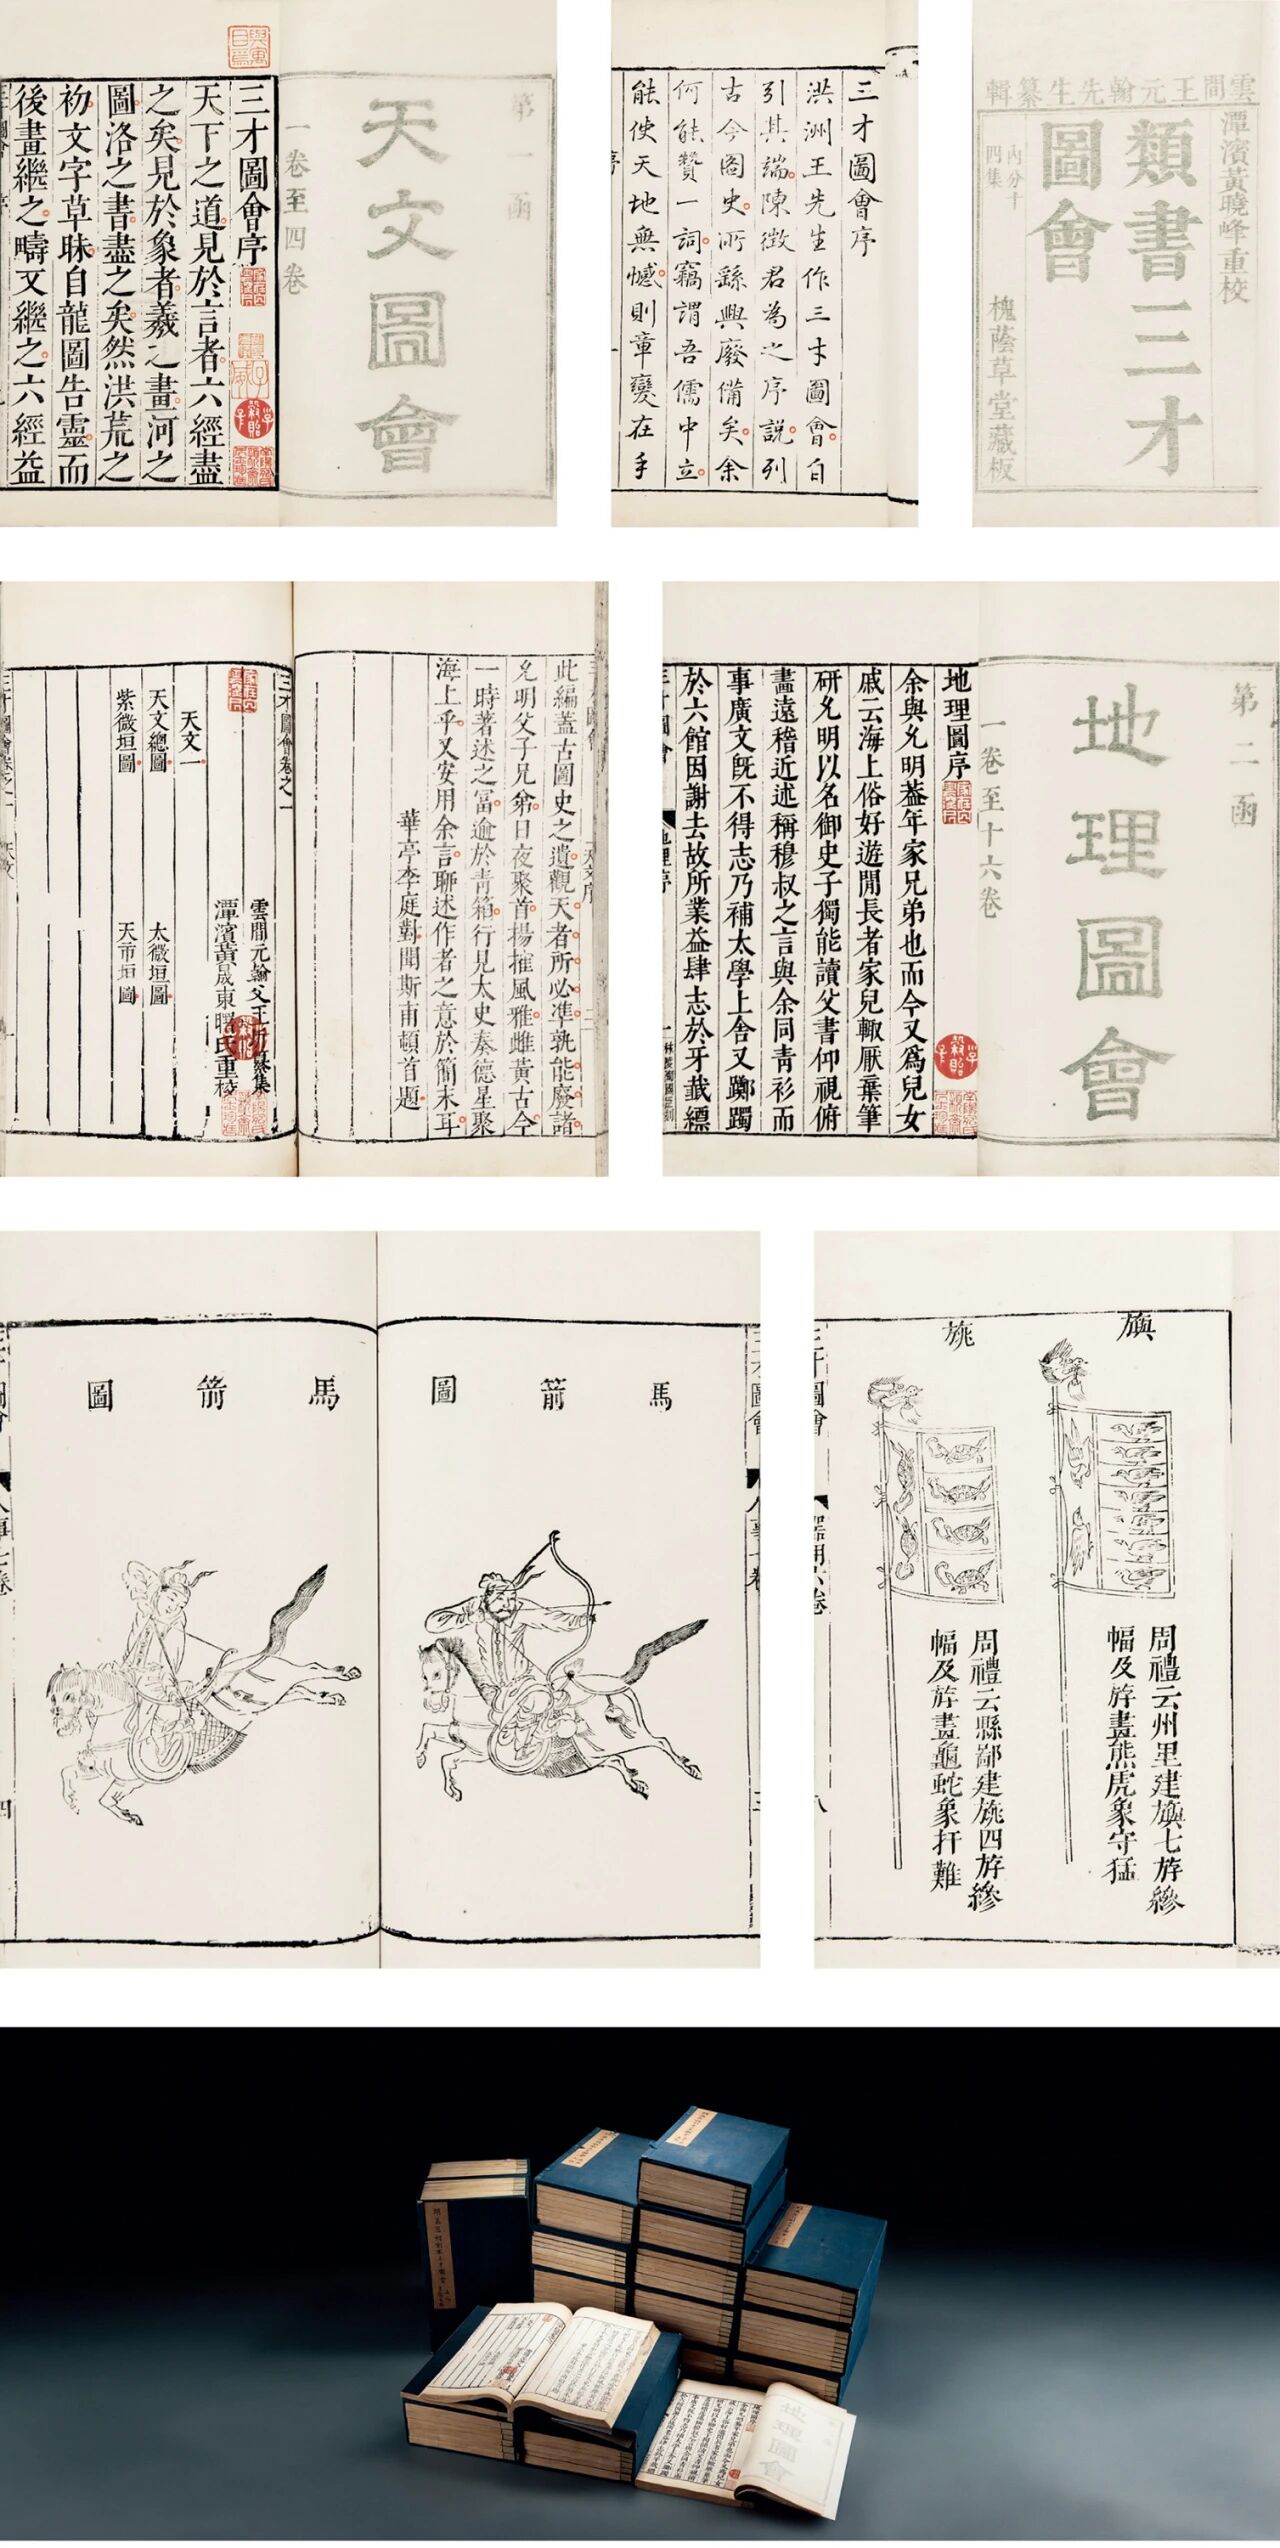 雲間王元翰先生纂輯
潭濱黃曉峰重校
類書三才
圖會
內分十
四集
槐蔭草堂藏板
三才圖會序
洪洲王先生作三才圖會自
引其端陳徵君為之序說列
古今圖史所繇興廢備矣余
何能贊一詞竊謂吾儒中立
能使天地無憾則章變在手
第一函
天文圖會
一卷至四卷
三才圖會序
天下之道見於言者六經盡
之矣見於象者羲之畫河之
圖洛之書盡之矣然洪荒之
初文字草昧自龍圖告靈而
後畫繼之疇又繼之六經益
第二函
地理圖會
一卷至十六卷
地理圖序
余與允明葢年家兄弟也而今又爲兒女
戚云海上俗好遊閒長者家兒輙厭棄筆
研允明以名御史子獨能讀父書仰視俯
畫遠稽近述稱穆叔之言與余同青衫而
事廣文旣不得志乃補太學上舍又躑躅
於六館因謝去故所業益肆志於牙籖縹
此編葢古圖史之遺觀天者所必凖孰能廢諸
允明父子兄弟日夜聚首揚搉風雅雌黃古今
一時著述之富逾於青箱行見太史奏德星聚
海上乎又安用余言聊述作者之意於簡末耳
華亭李庭對聞斯甫頓首題
三才圖會卷之一
雲間元翰父王圻纂集
潭濱黃晟東曙氏重校
天文一
天文總圖
太微垣圖
紫微垣圖
天市垣圖
馬箭圖
馬箭圖
三才圖會
旟
周禮云州里建旟七斿縿
幅及斿畫熊虎象守猛
旐
周禮云縣鄙建旐四斿縿
幅及斿畫龜蛇象扞難
地理圖會